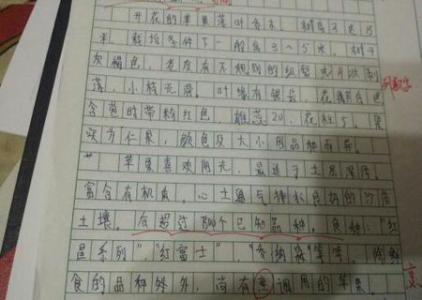 开花的苹果落叶乔木，树高可达15
米，栽培条件下一般高3～5米，树干
灰褐色，老皮有不规则的纵裂或片状剥
落，小枝光滑。叶缘有锯齿，花瓣白色
含苞时带粉红色，雄蕊20，花柱5。果
实为仁果，颜色及大小因品种而异。
苹果喜欢阳光，最适于土层深厚，
富含有机质，心土通气排水良好的沙质
土壤。在超过 个已知品种，食种：“红
星系列”“红富士”“ ”等等，除
食的品种外外，尚有烹调用的苹果